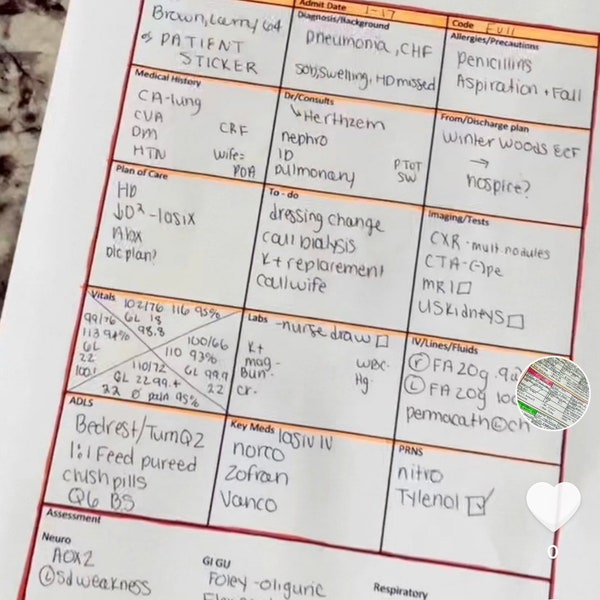 Admit Date 1-17
Brown, Larry 64
PATIENT
STICKER
Diagnosis/Background
pneumonia, CHF
SOB, swelling, HD missed
Code Full
Allergies/Precautions
penicillins
Aspiration + Fall
Medical History
CA-lung
CVA
DM CRF
HTN wife=
POA
Dr/Consults
Herthzem
nephro
ID
pulmonary
PTOT
SW
From/Discharge plan
Winter Woods ECF
→
hospice?
Plan of Care
HD
↓O² - lasix
Abx
D/c plan?
To - do
dressing change
call dialysis
K+ replacement
call wife
Imaging/Tests
CXR - mult nodules
CTA - (-) pe
MRI □
US kidneys □
Vitals
102/76 116 95%
6L 18
98.8
99/76
113 94%
6L
22
100!
100/66
110 93%
6L 99.9
22
110/72
6L 22 99.4
22 pain 95%
Labs - nurse draw □
K+
mag-
Bun-
cr-
WBC-
Hg-
IV/Lines/Fluids
(R) FA 20g .9
(L) FA 20g 100
permacath (L) ch
ADLS
Bedrest/Turn Q2
1:1 Feed pureed
crush pills
Q6 BS
Key Meds lasix IV
norco
Zofran
Vanco
PRNS
nitro
Tylenol ☑
Assessment
Neuro
AOX2
(L) sd weakness
GI GU
Foley - oliguric
Respiratory
0